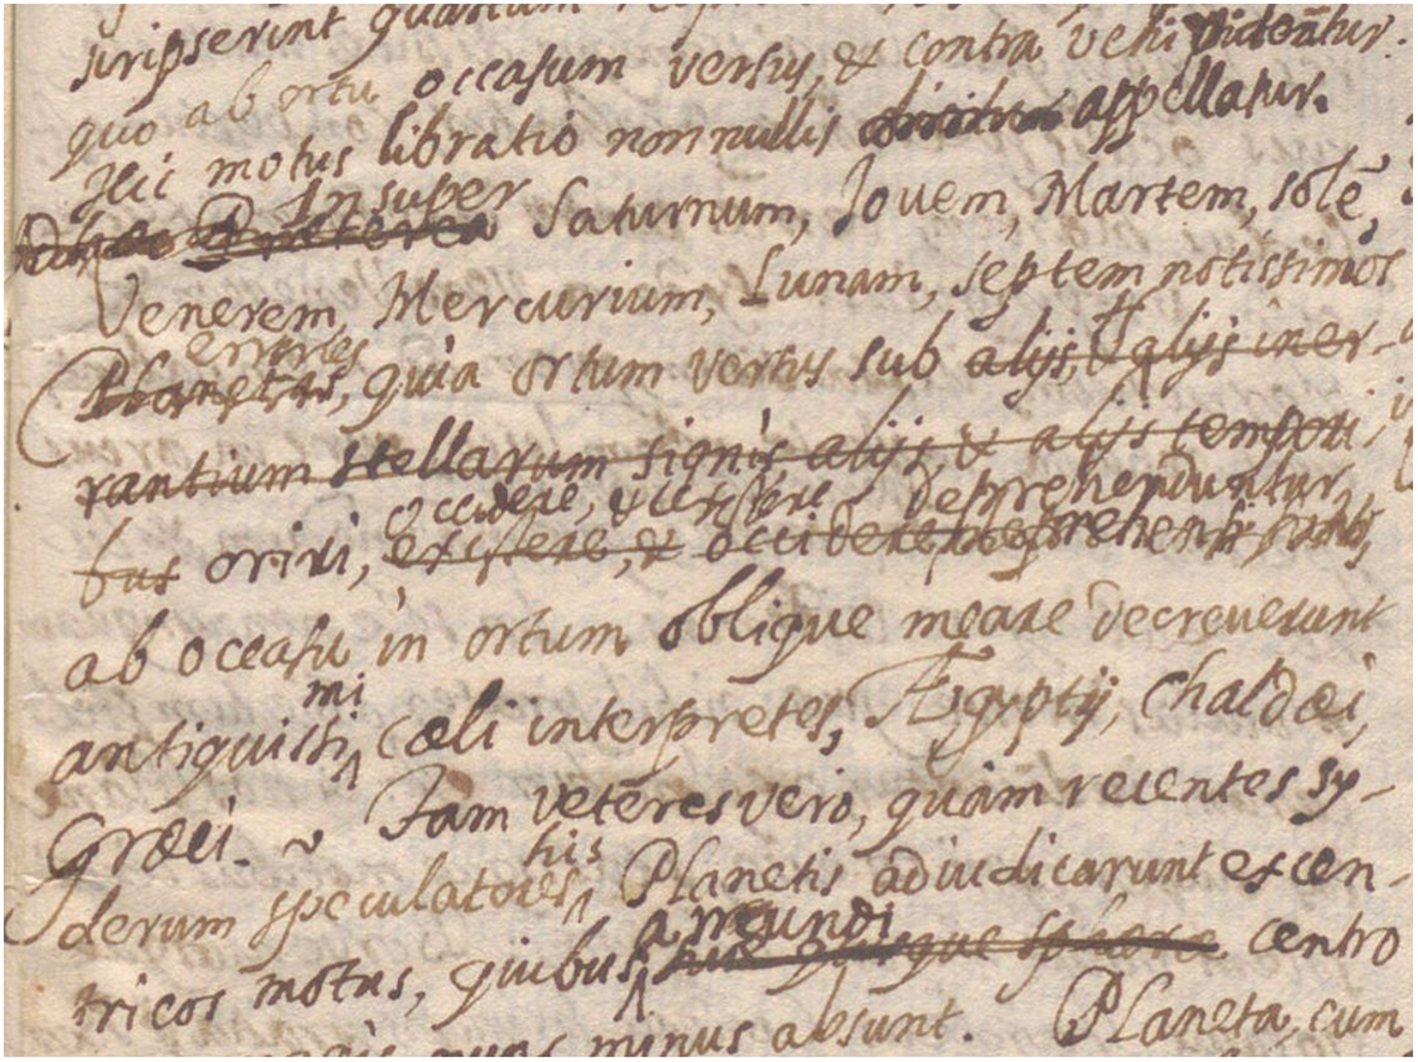 scripserint quantum
quo ab ortu occasum versus, & contra vehi videntur.
Hic motus libratio nonnullis dicitur appellatur.
Insuper
Præterea Saturnum, Jovem, Martem, solē,
Venerem, Mercurium, Lunam, septem notissimos
errones
Planetas, quia ortum versus sub alijs, & alijs iner-
rantium stellarum signis alijs, & alijs tempori
occidere, & existere deprehenduntur,
bus oriri, existere, & occidere deprehensi sunt,
ab occasu in ortum oblique meare decreuerunt
mi
antiquissi cæli interpretes, Ægyptij, Chaldæi,
Græci. Tam veteres vero, quàm recentes sy-
his
derum speculatores, Planetis adiudicarunt excen-
a mundi
tricos motus, quibus suæ quisque sphæræ centro
magis nunc minus absunt. Planeta, cum